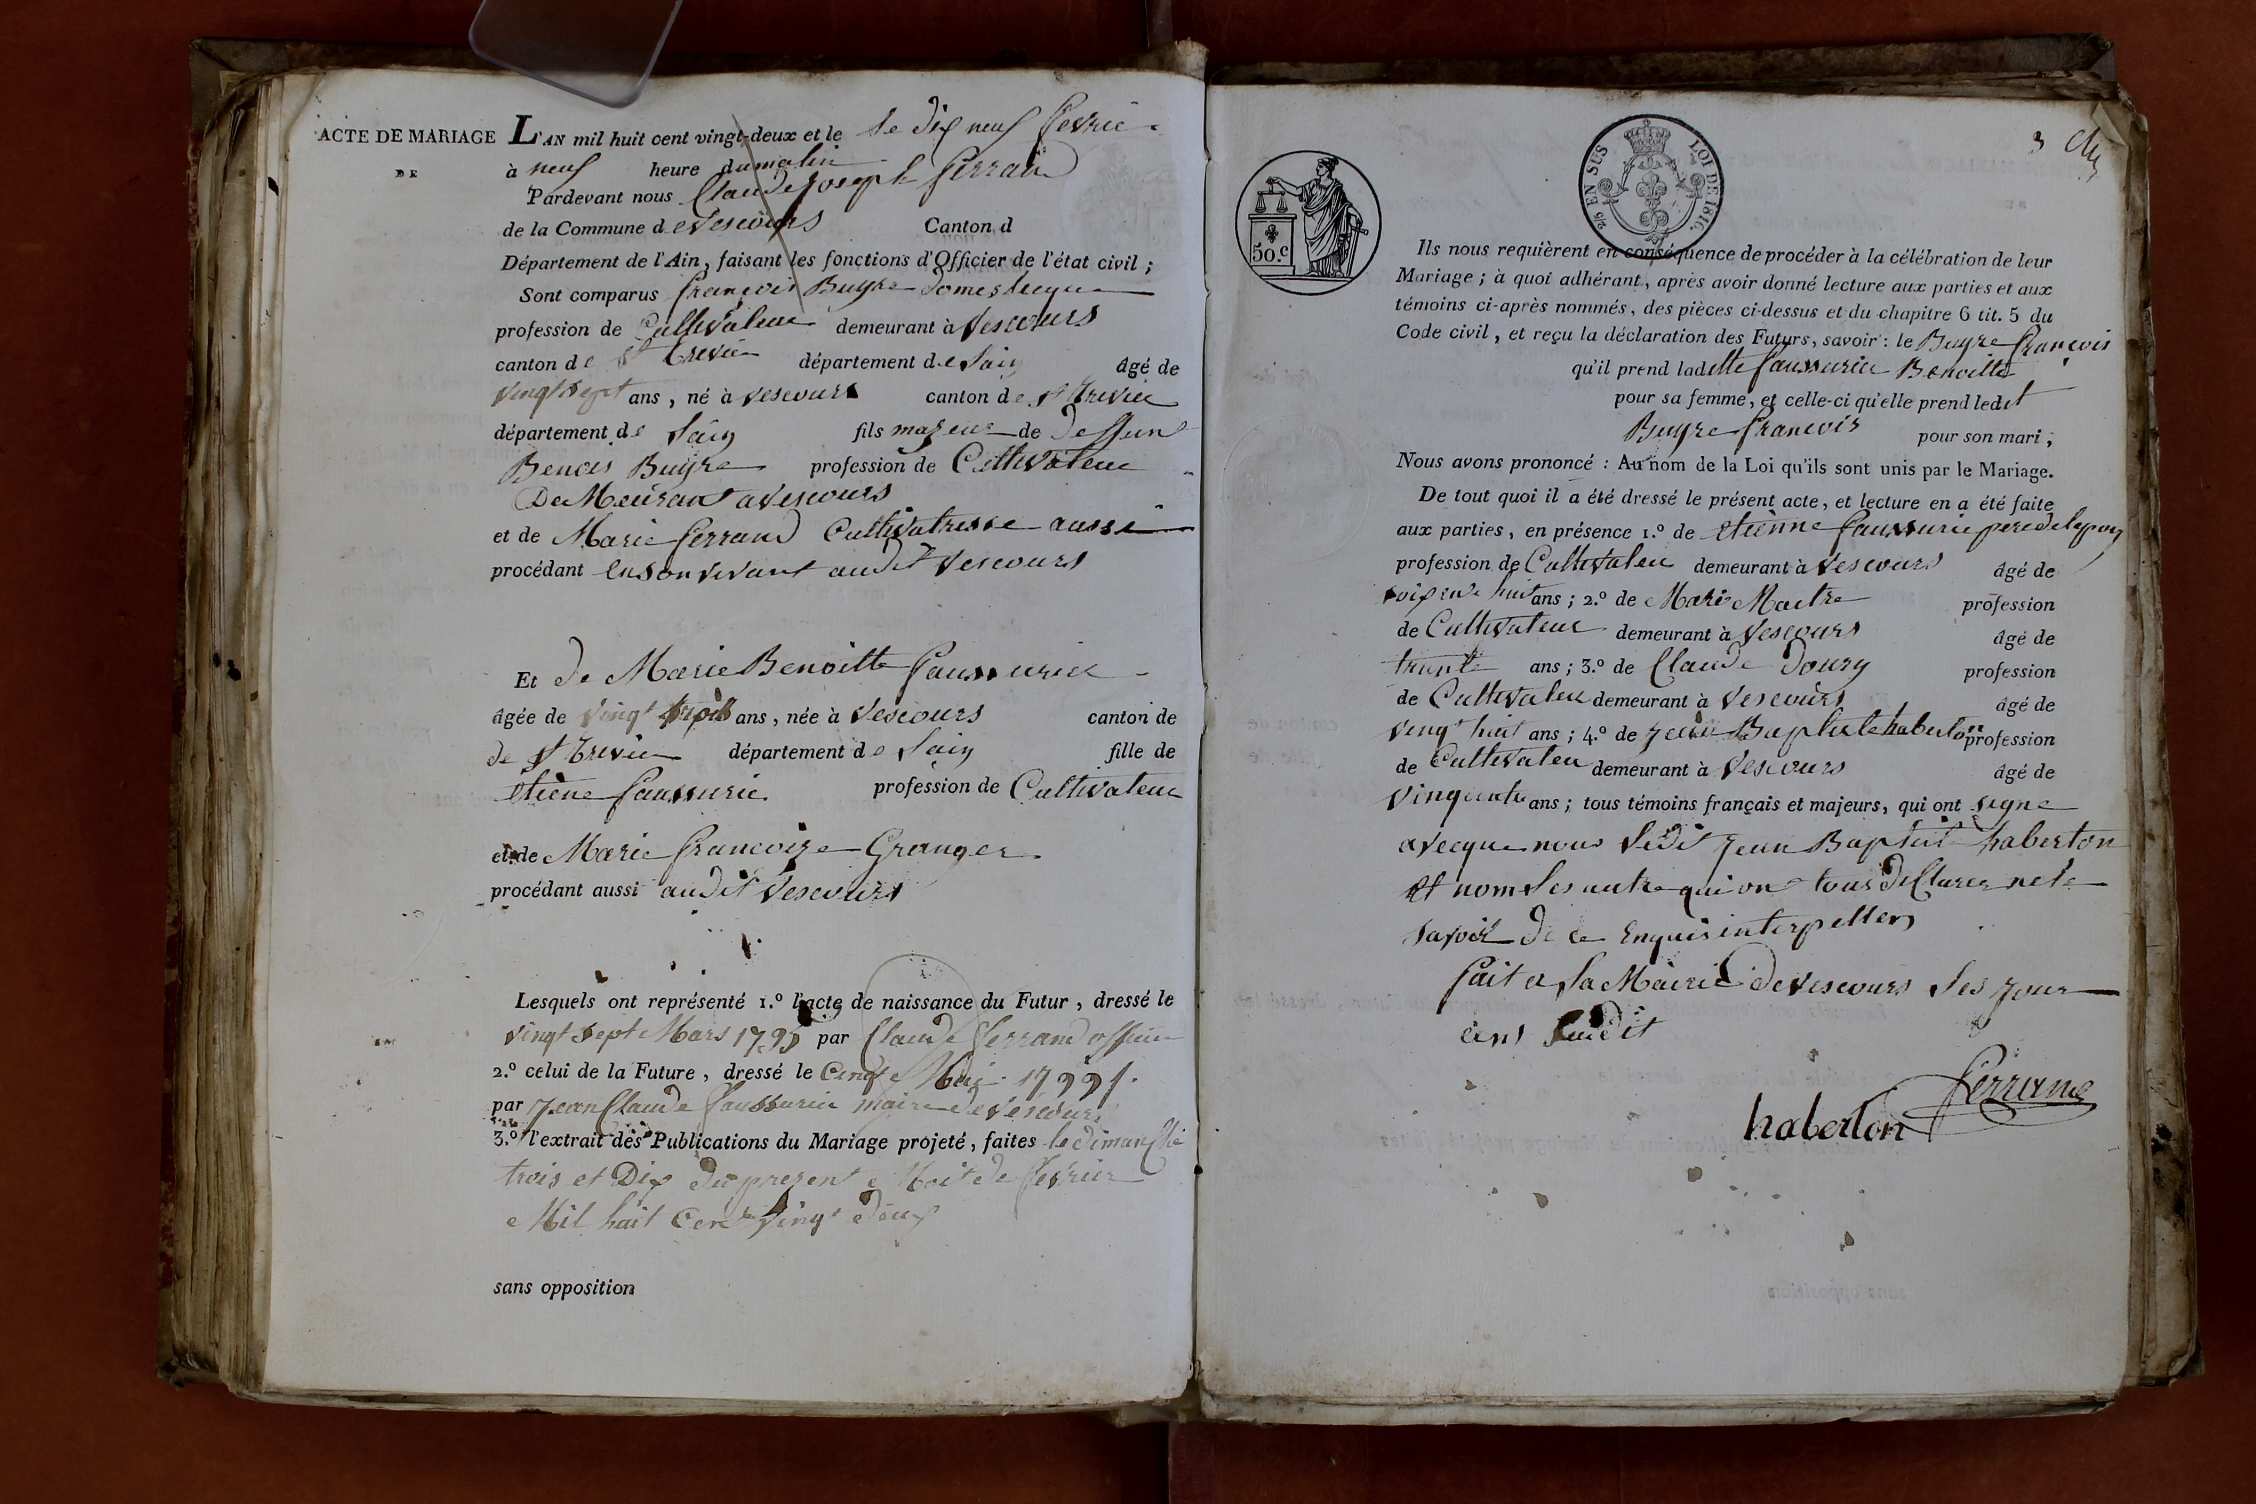 ACTE DE MARIAGE
DE
L'AN mil huit cent vingt-deux et le le dix neuf fevrie
à neuf heure du matin
Pardevant nous Claude joseph ferrand
de la Commune de vescours Canton d
Département de l'Ain, faisant les fonctions d'Officier de l'état civil ;
Sont comparus françois Buyre domestique
profession de Cultivateur demeurant à vescours
canton de st trevier département de lain âgé de
vingt sept ans, né à vescours canton de st trevier
département de lain fils majeur de deffunt
Benois Buyre profession de Cultivateur
De Meurant a vescours
et de Marie ferrand Cultivatresse aussi
procédant en son vivant audit vescours
Et de Marie Benoitte faussurier
âgée de vingt trois ans, née à vescours canton de
de st trevier département de lain fille de
etiene faussurie profession de Cultivateur
et de Marie francoise Granger
procédant aussi audit vescours
Lesquels ont représenté 1.º l'acte de naissance du Futur, dressé le
vingt sept Mars 1795 par Claude ferrand officier
2.º celui de la Future, dressé le Cinq Mai
par jean Claude faussurier maire de vescours
3.º l'extrait des Publications du Mariage projeté, faites le dimanche
trois et Dix du present Mois de fevrier
Mil huit Cent vingt deux
sans opposition
3
2/5 EN SUS LOI DE 1816.
50.c
Ils nous requièrent en conséquence de procéder à la célébration de leur
Mariage ; à quoi adhérant, après avoir donné lecture aux parties et aux
témoins ci-après nommés, des pièces ci-dessus et du chapitre 6 tit. 5 du
Code civil, et reçu la déclaration des Futurs, savoir : le Buyre françois
qu'il prend ladette faussurier Benoitte
pour sa femme, et celle-ci qu'elle prend ledit
Buyre francois pour son mari ;
Nous avons prononcé : Au nom de la Loi qu'ils sont unis par le Mariage.
De tout quoi il a été dressé le présent acte, et lecture en a été faite
aux parties, en présence 1.º de etienne faussurie pere de lepouz
profession de Cultivateur demeurant à vescours âgé de
soixente huit ans ; 2.º de Marie Maitre profession
de Cultivateur demeurant à vescours âgé de
trante ans ; 3.º de Claude Doury profession
de Cultivateur demeurant à vescours âgé de
vingt huit ans ; 4.º de jean Baptiste haberton profession
de Cultivateu demeurant à vescours âgé de
Vinquante ans ; tous témoins français et majeurs, qui ont signe
avecque nous ledit jean Baptist haberton
et nom les autre qui ont tous declarer ne le
savoir de ce enquis interpellers
fait a la Mairie de vescours les jour
ans sudit
ferrand
haberton